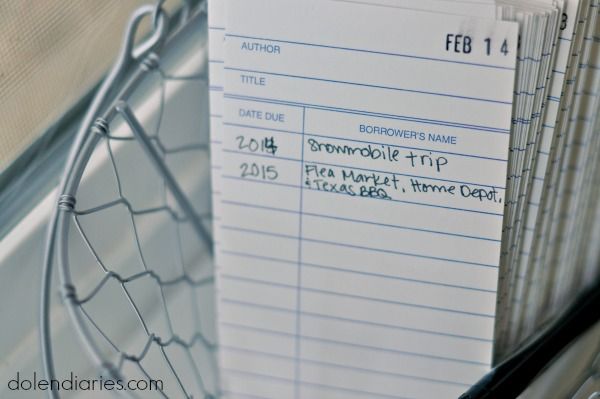 FEB 14
AUTHOR
TITLE
DATE DUE BORROWER'S NAME
2014 Snowmobile trip
2015 Flea Market, Home Depot,
& Texas BBQ
dolendiaries.com